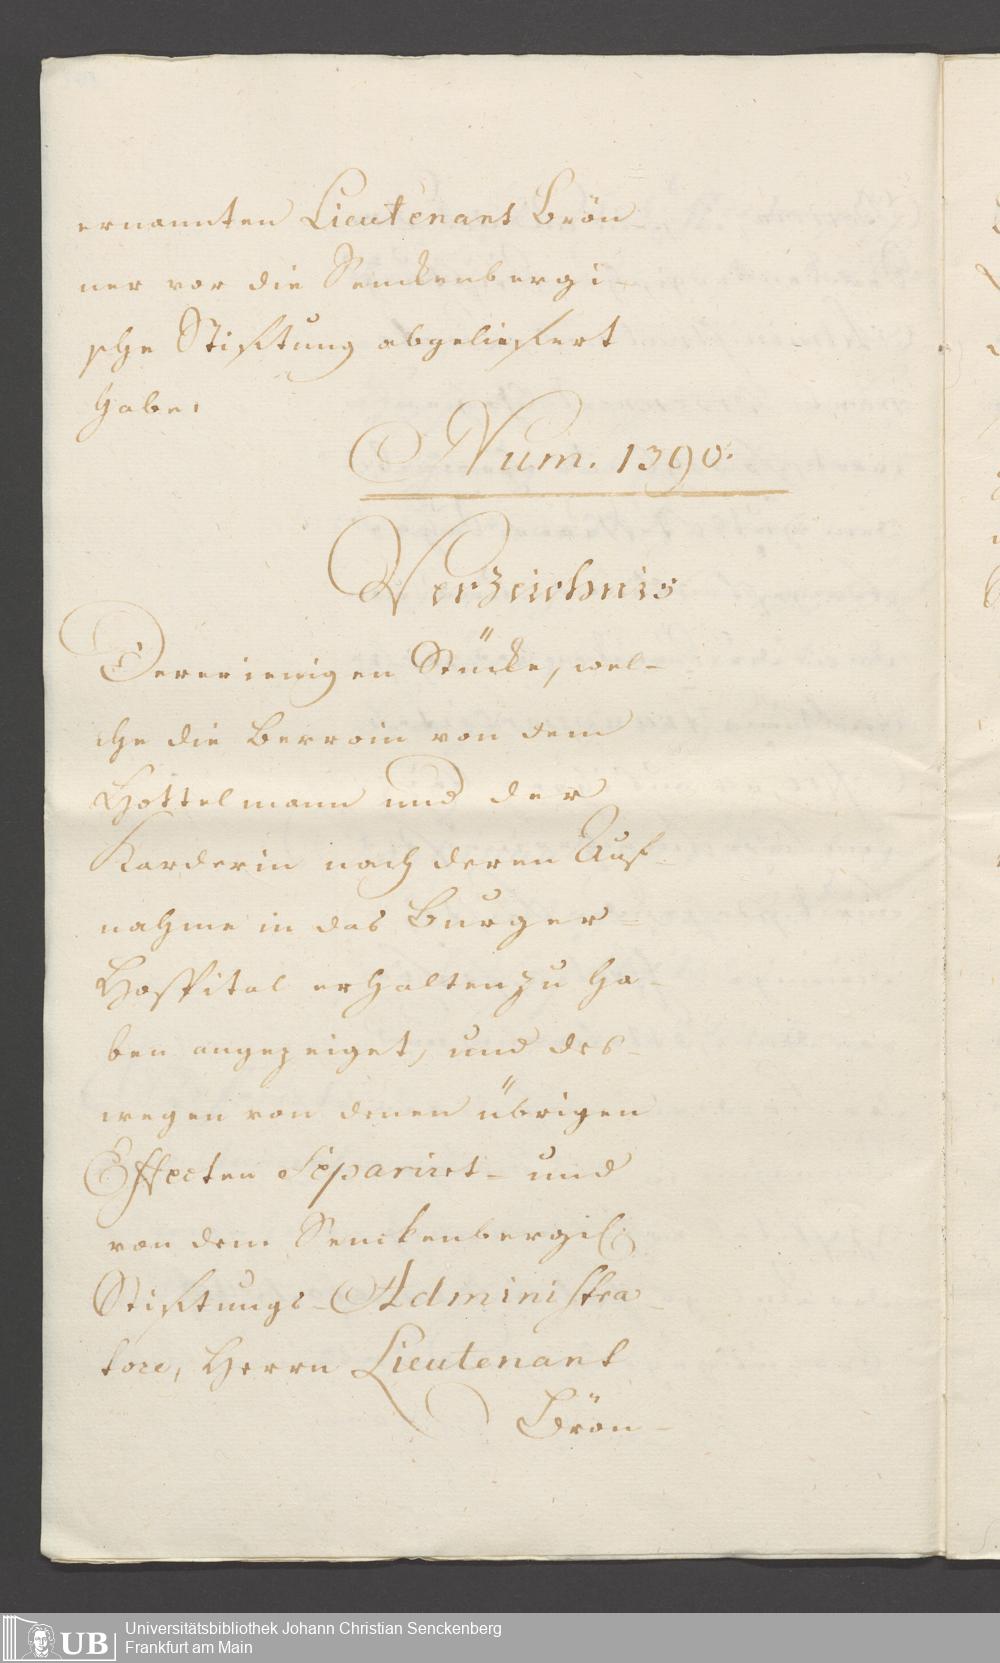 ernannten Lieutenant Brön
ner vor die Senckenbergi-
sche Stifftung abgeliefert
habe.
Num. 1390.
Verzeichnis
Dererienigen Stücke, wel-
che die Berroin von dem
Hottelmann und der
Karderin nach deren Auf-
nahme in das Burger-
Hospital erhalten zu ha-
ben angezeiget, und des-
wegen von denen übrigen
Effecten Separiret- und
von dem Senckenbergis.
Stifftungs-Administra-
tore, Herrn Lieutenant
Brön-
UB
Universitätsbibliothek Johann Christian Senckenberg
Frankfurt am Main